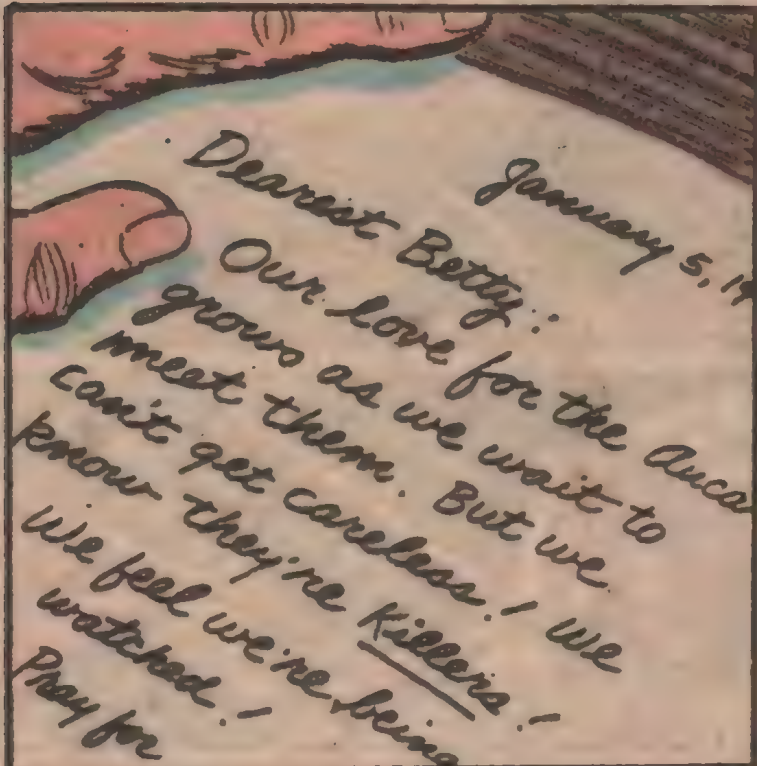 January 5, 19
Dearest Betty:
Our love for the Auca
grows as we wait to
meet them. But we
can't get careless! We
know they're Killers!
We feel we're being
watched!
Pray for